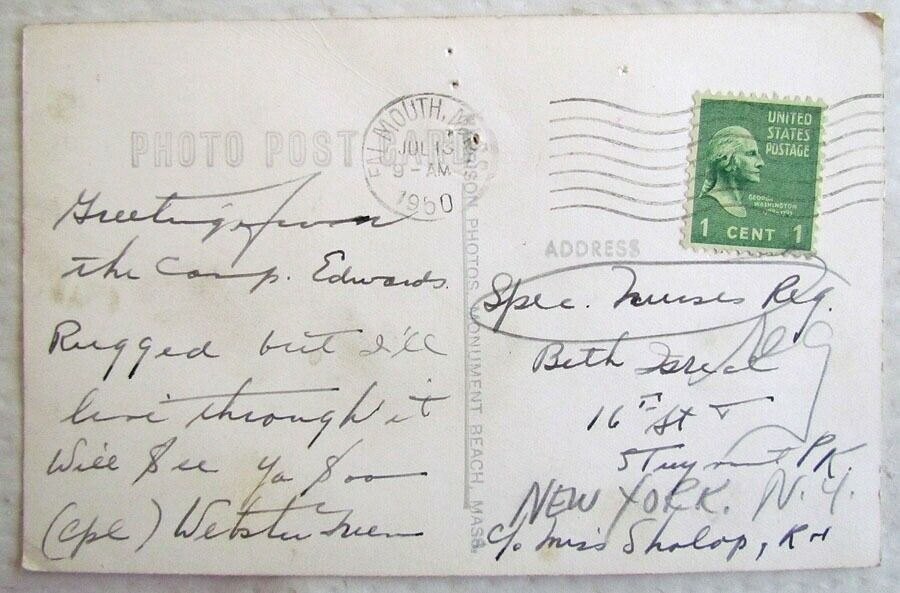 PHOTO POST CARD
FALMOUTH, MASS
JUL 13
9-AM
1950
UNITED
STATES
POSTAGE
GEORGE
WASHINGTON
1 CENT 1
Greetings from
the Camp. Edwards.
Rugged but I'll
live through it
Will See Ya Soon
(Cpl) Webster
ADDRESS
Spec. Nurses Reg.
Beth Isreal
16th St
Stuy PK.
NEW YORK. N.Y.
c/o Miss Sholop, RN
PHOTOS, MONUMENT BEACH, MASS.